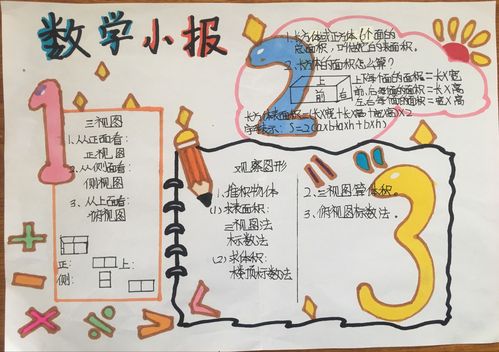 数学小报
1
三视图
1、从正面看：
正视图
2、从侧面看：
侧视图
3、从上面看：
俯视图
正：
上：
侧：
2
1、长方体或正方体6个面的
总面积，叫做它的表面积。
2、长方体的面积怎么算？
上
前
右
上下每个面的面积＝长×宽
前、后每个面的面积＝长×高
左右每个面的面积＝宽×高
长方体表面积＝(长×宽＋长×高＋宽×高)×2
字母表示：S=2(axb+axh+bxh)
观察图形
1、堆积物体
(1)求表面积：
三视图法
标数法
(2)求体积：
楼顶标数法
2、三视图算体积。
3、俯视图标数法。
3
+ ÷
−
× ÷ √ <